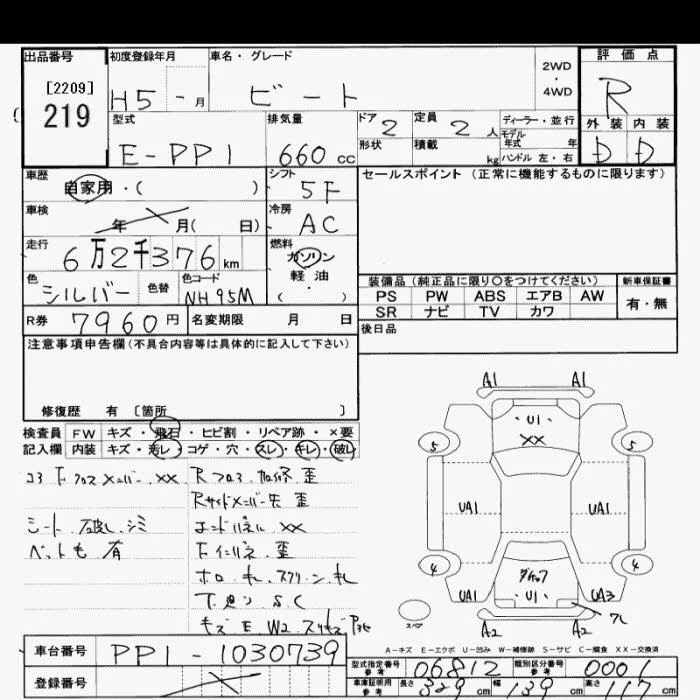 出品番号 初度登録年月 車名・グレード 評価点
[2209]
219
H5 - 月 ビート 2WD・4WD R
型式 排気量 ドア 2 定員 2人 ディーラー・並行 外装 内装
モデル年式 年
E-PP1 660cc 形状 積載 kg ハンドル 左・右 D D
車歴 シフト セールスポイント (正常に機能するものに限ります)
自家用・( ) 5F
車検 冷房
年 月( 日) AC
走行 燃料
6万2千376km ガソリン
軽油
( ・ )
色 色替 色コード 装備品 (純正品に限り○をつけてください) 新車保証書
シルバー NH95M PS PW ABS エアB AW 有・無
SR ナビ TV カワ
R券 7960円 名変期限 月 日 後日品
注意事項申告欄(不具合内容等は具体的に記入して下さい)
修復歴 有 〔箇所 〕
検査員 FW キズ・飛石・ヒビ割・リペア跡・×要
記入欄 内装 キズ・汚レ・コゲ・穴・スレ・キレ・破レ
コアF クロスメンバー XX
シート 破レ シミ
ペット毛 有
Rフロア 加修 歪
Rサイドメンバー先 歪
エンドパネル XX
Fインパネ 歪
ホロ キレ スクリーン キレ
下廻り S.C
キズ E W2
A1 A1
U1
XX
5 5
UA1 UA1
4 4
U1
UA1 UA3
A2 A2
スペア
A-キズ E-エクボ U-凹み W-補修跡 S-サビ C-腐食 XX-交換済
車台番号 PP1-1030739
登録番号
型式指定番号 参考 06812 類別区分番号 参考 0001
車庫証明用 参考 長さ 329cm 幅 139cm 高さ 117cm